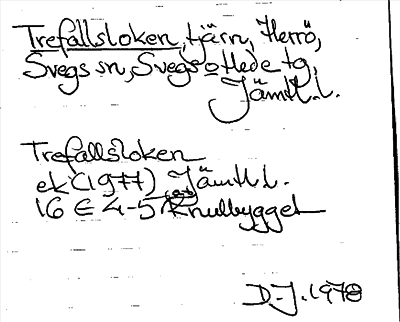 Trefallsloken, tjärn, Herrö,
Svegs sn, Svegs o Hede tg,
Jämtl.l.
Trefallsloken
ek (1977) Jämtl.l.
16 E 4-5 Knulbygget
D-J. 1978